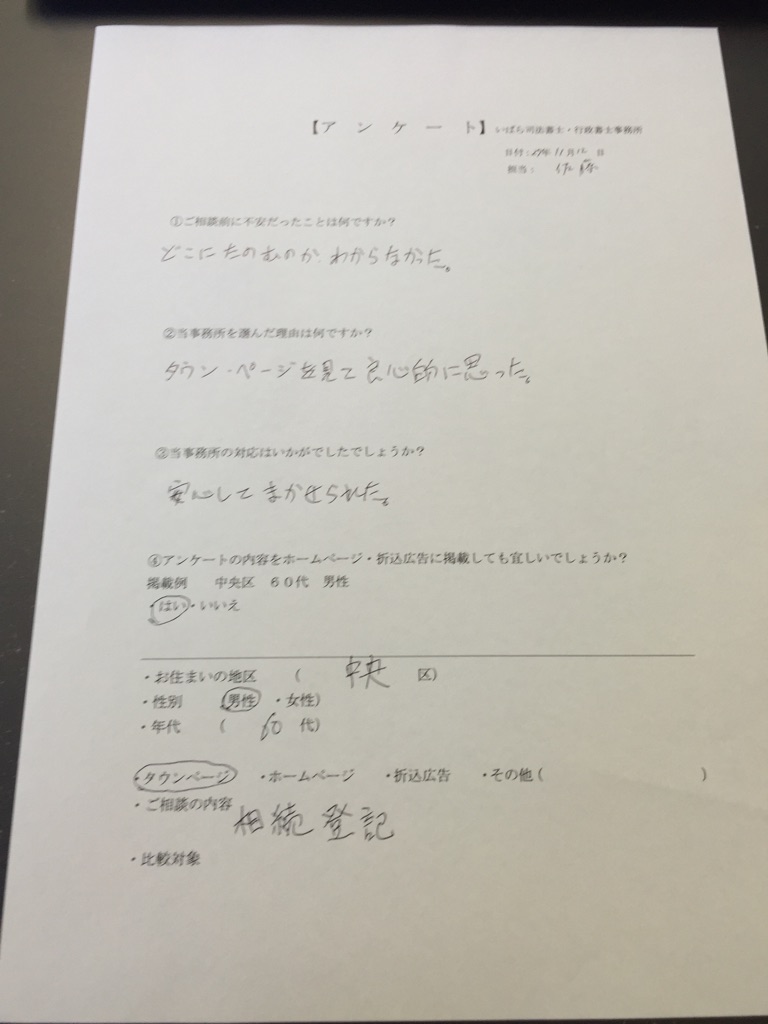 【ア ン ケ ー ト】 いばら司法書士・行政書士事務所
日付：27年 11月12 日
担当： 佐藤
①ご相談前に不安だったことは何ですか？
どこにたのむのか、わからなかった。
②当事務所を選んだ理由は何ですか？
タウン・ページを見て良心的に思った。
③当事務所の対応はいかがでしたでしょうか？
安心してまかせられた。
④アンケートの内容をホームページ・折込広告に掲載しても宜しいでしょうか？
掲載例 中央区 ６０代 男性
・はい・いいえ
・お住まいの地区 （ 中央 区）
・性別 （男性 ・女性）
・年代 （ 60 代）
・タウンページ ・ホームページ ・折込広告 ・その他（ ）
・ご相談の内容
相続登記
・比較対象